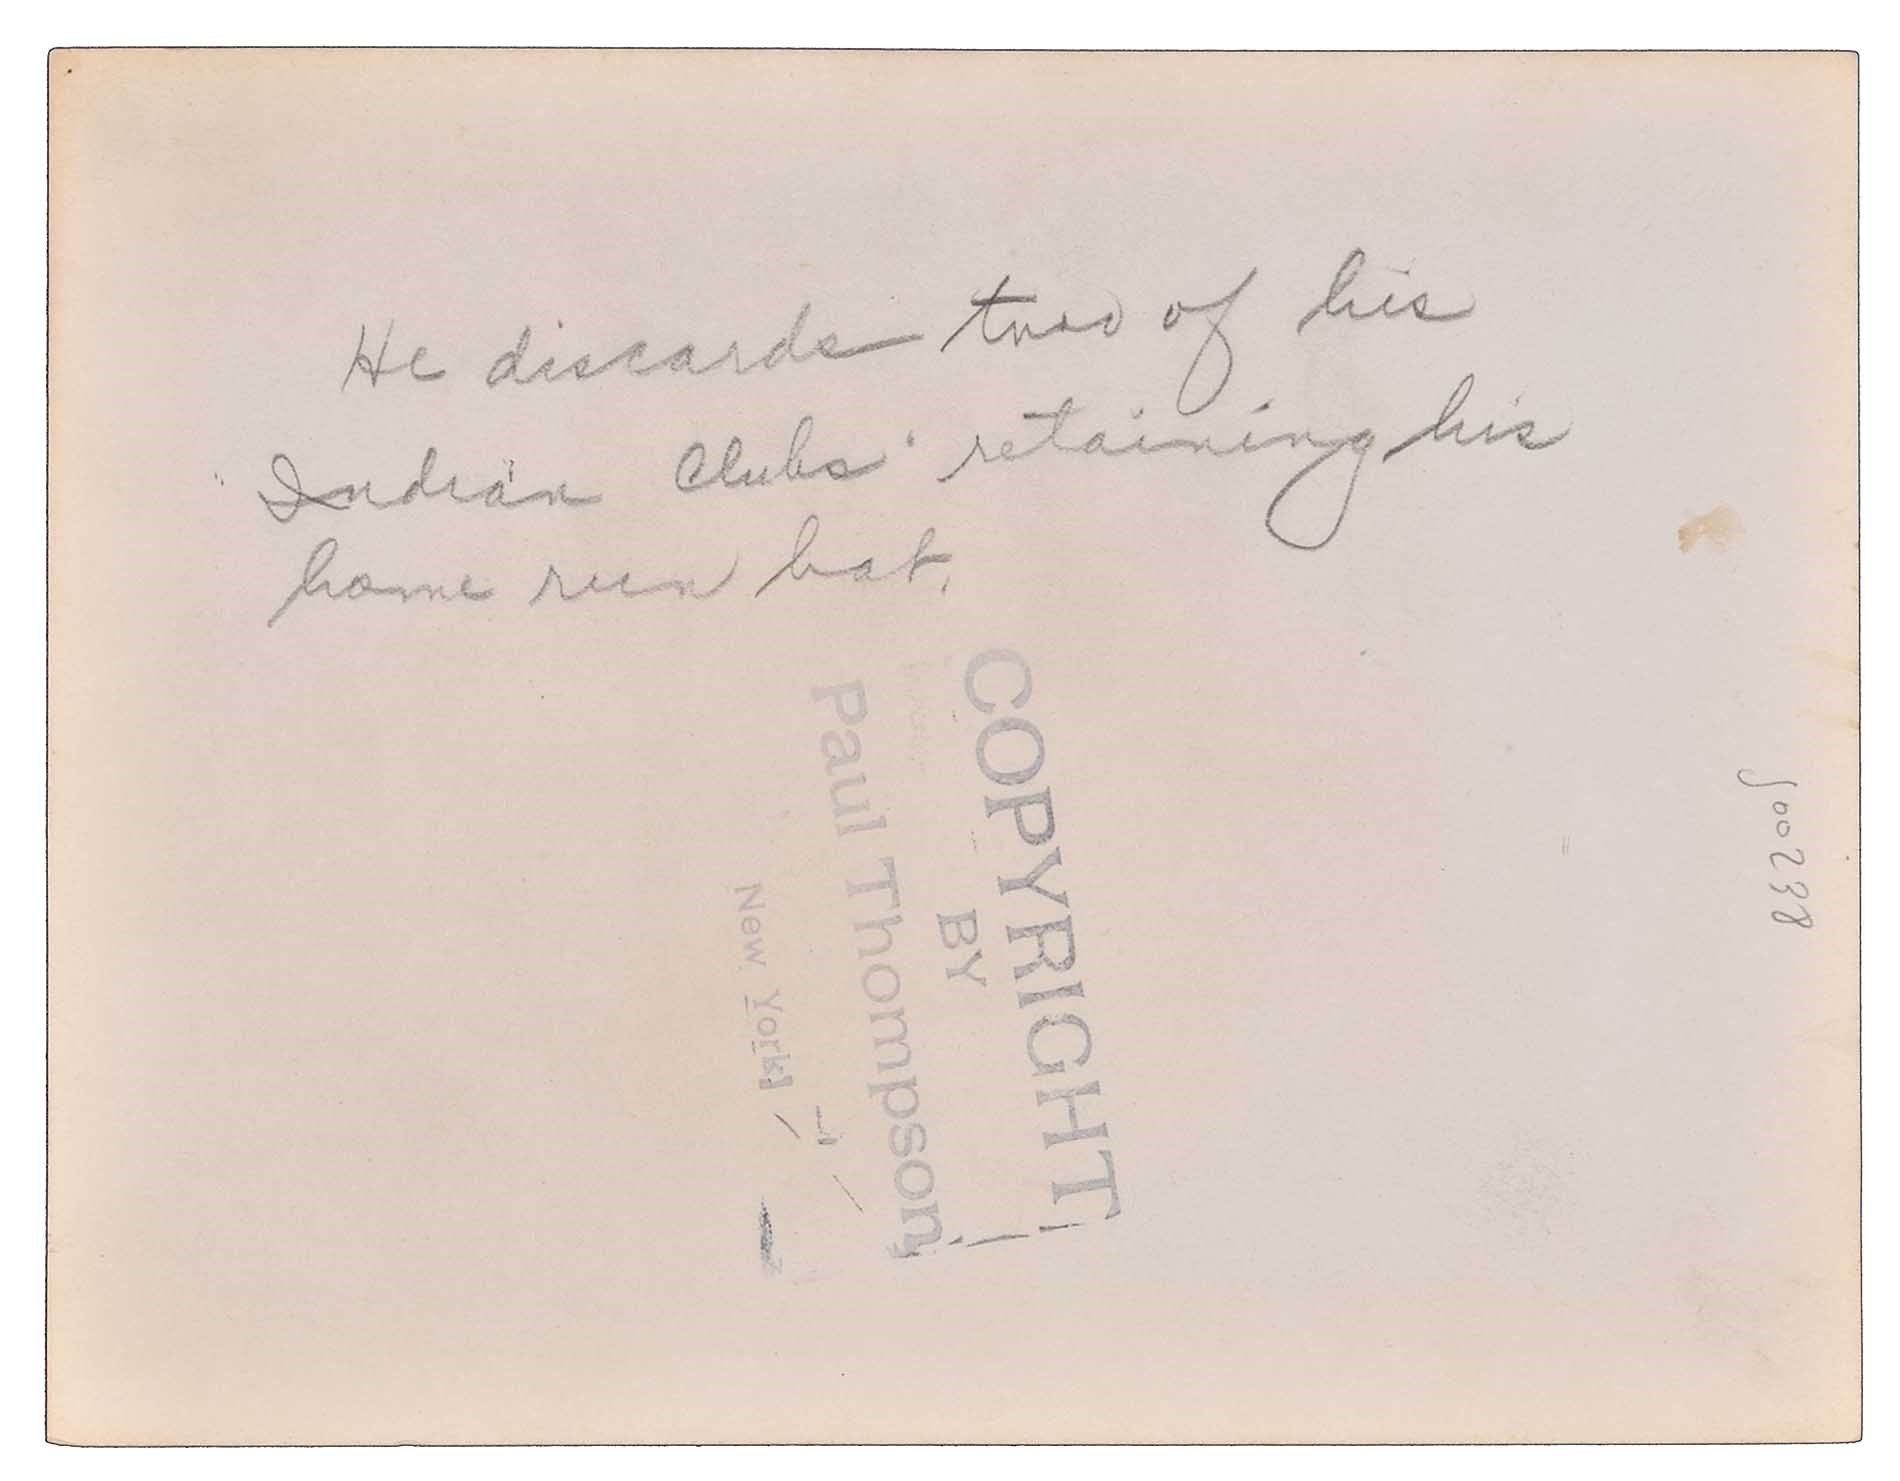 He discards two of his
"Indian Clubs" retaining his
home run bat.
COPYRIGHT
BY
Paul Thompson
New York
500238